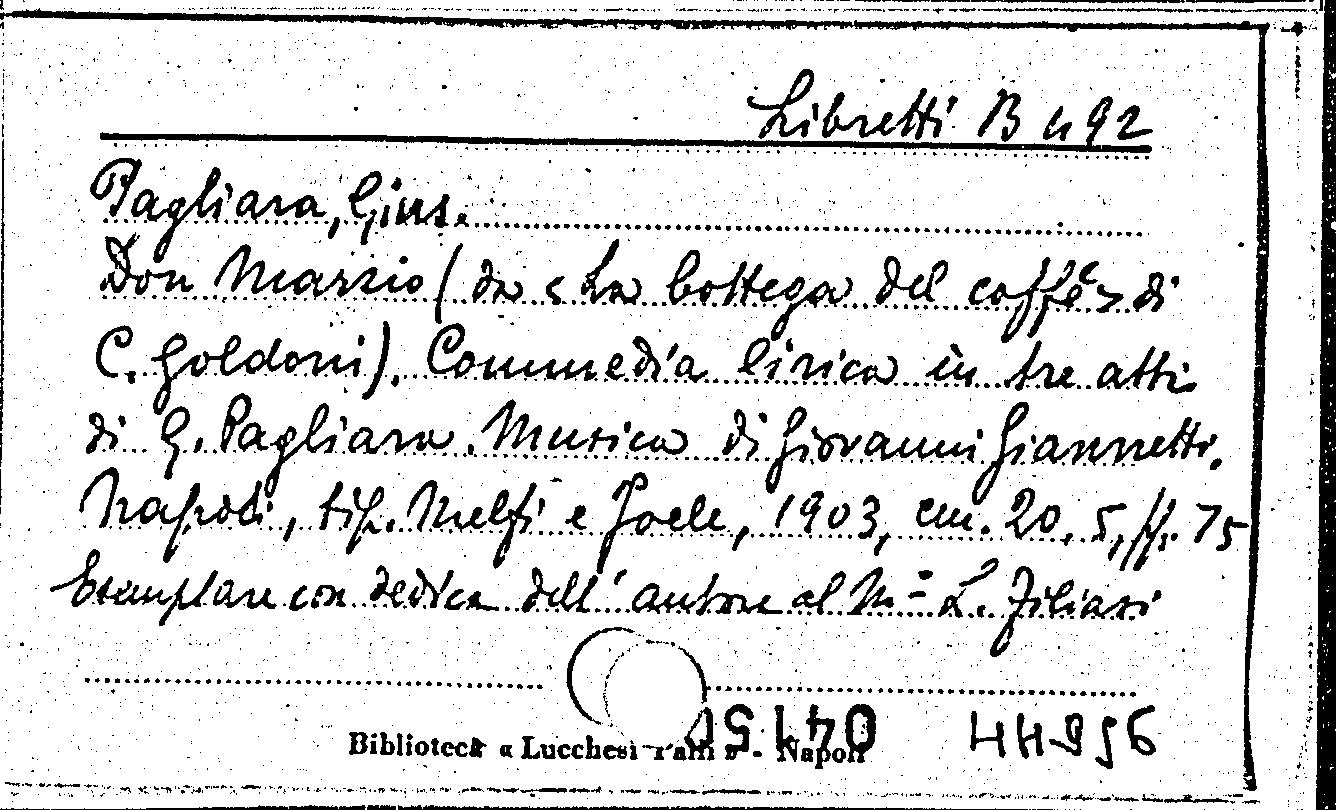 Libretti B 492
Pagliara, Gius.
Don Marzio (da «La bottega del caffè» di
C. Goldoni). Commedia lirica in tre atti
di G. Pagliara. Musica di Giovanni Giannetti.
Napoli, tip. Melfi e Joele, 1903, cm. 20,5, pp. 75
Esemplare con dedica dell'autore al Mº L. Filiasi
Biblioteca « Lucchesi Palli » - Napoli